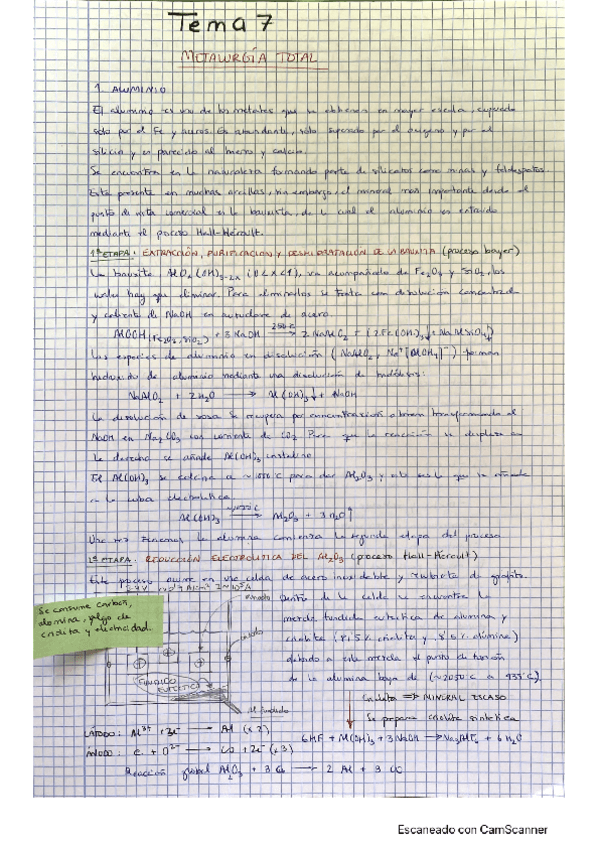 Tema 7
METALURGIA TOTAL
1. ALUMINIO
El aluminio es uno de los metales que se obtienen en mayor escala, superado
solo por el Fe y aceros. Es abundante, sólo superado por el oxígeno y por el
silicio y es parecido al hierro y calcio.
Se encuentra en la naturaleza formando parte de silicatos como micas y feldespatos.
Esta presente en muchas arcillas, sin embargo, el mineral mas importante desde el
punto de vista comercial es la bauxita, de la cual el aluminio es extraido
mediante el proceso Hall-Hérault.
1ª ETAPA: EXTRACCIÓN, PURIFICACION y DESHIDRATACIÓN DE LA BAUXITA (proceso bayer)
La bauxita, AlOx(OH)3-2x (0<x<1), va acompañado de Fe2O3 y SiO2, los
cuales hay que eliminar. Para eliminarlos se trata con disolución concentrada
y caliente de NaOH en autoclave de acero.
AlOOH (Fe2O3, SiO2) + 3 NaOH 250°C → 2 NaAlO2 + (2 Fe(OH)3↓ + NaAlSiO4↓)
Las especies de aluminio en disolución (NaAlO2, Na+[Al(OH)4]-) forman
hidroxido de aluminio mediante una disolución de hidrólisis:
NaAlO2 + 2H2O → Al(OH)3↓ + NaOH
La disolución de sosa se recupera por concentración o bien transformando el
NaOH en Na2CO3 con corriente de CO2. Para que la reacción se desplace en
la derecha se añade Al(OH)3 cristalino.
El Al(OH)3 se calcina a ~ 1000°C para dar Al2O3 y esto es lo que se añade
a la cuba electrolitica
Al(OH)3 → Al2O3 + 3 H2O↑
Una vez tenemos la alumina comienza la segunda etapa del proceso
REDUCCIÓN ELECTROLITICA DEL Al2O3 (proceso Hall-Hérault)
Este proceso ocurre en una celda de acero inoxidable y recubierta de grafito.
Se consume carbon,
alumina, algo de
criolita y electricidad.
Dentro de la celda se encuentra la
mezcla fundida eutectica de alumina y
criolita
debido a esta mezcla el punto de fusión
de la alumina baja de (~2050°C a 935°C).
FUNDIDO
EUTECTICO
Al fundido
Criolita ⇒ MINERAL ESCASO
Se prepara criolita sintetica
6HF + Al(OH)3 + 3 NaOH → Na3AlF6 + 6 H2O
CÁTODO: Al3+ + 3e- → Al (x2)
ÁNODO: C + O2- → CO + 2e- (x3)
Reacción global Al2O3 + 3 C → 2 Al + 3 CO
Escaneado con CamScanner